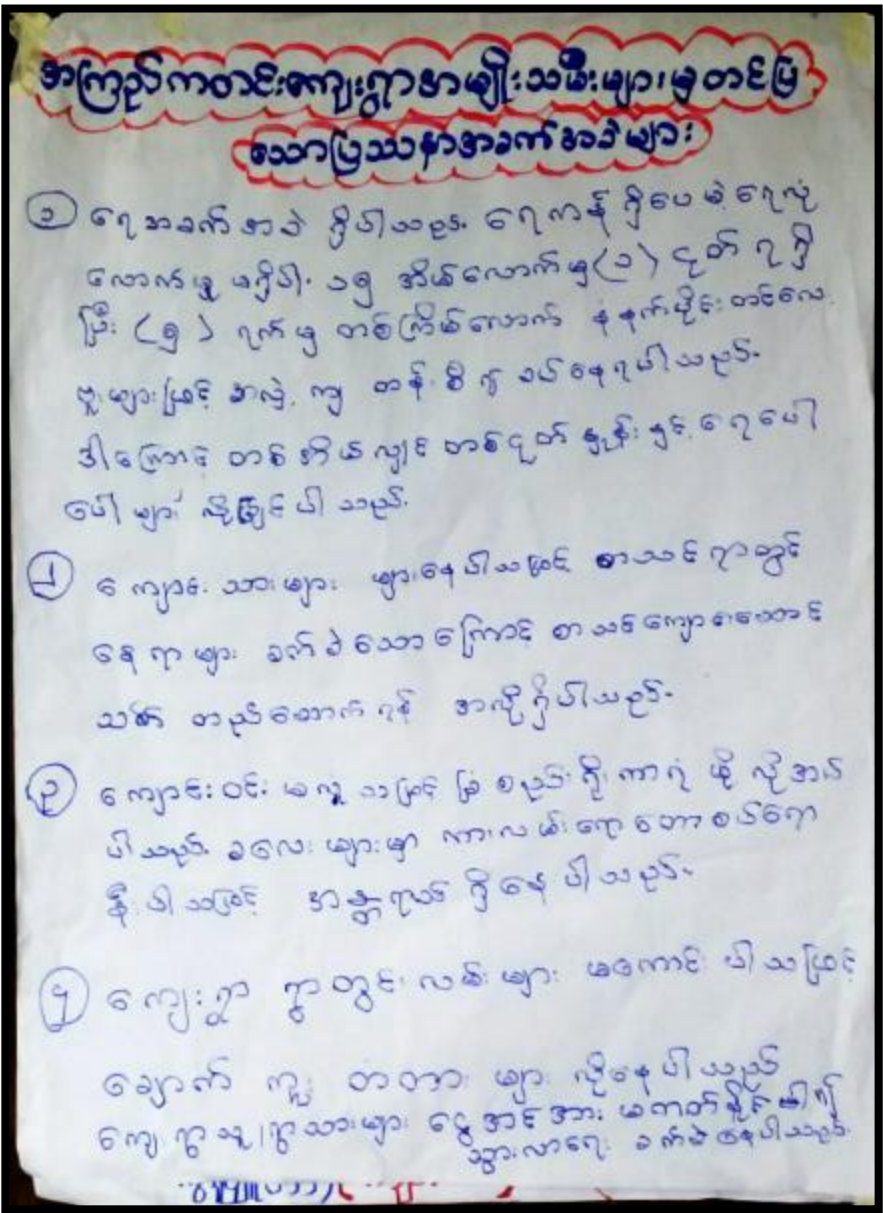 အကြည်ကတင်းကျေးရွာအမျိုးသမီးများမှတင်ပြ
သောပြဿနာအခက်အခဲများ
၁ ရေအခက်အခဲ ရှိပါသည်။ ရေကန် ရှိပေမဲ့ ရေလုံ
လောက်မှု မရှိပါ။ ၁၅ အိမ်လောက်မှ (၁) ငုတ် ရရှိ
ပြီး (၅) ရက်မှ တစ်ကြိမ်လောက် နံနက်ပိုင်း တင်လေ့
ဗူးများဖြင့် အလှဲ့ ကျ တန်းစီ ၍ ခပ်နေရပါသည်။
ဒါကြောင့် တစ်အိမ်လျှင် တစ်ငုတ် နှုန်းနှင့် ရေပေါ
ပေါ များ လိုချင်ပါသည်။
၂ ကျောင်းသားများ များနေပါသဖြင့် စာသင်ရာတွင်
နေရာများ ခက်ခဲသောကြောင့် စာသင်ကျောင်းဆောင်
သစ် တည်ဆောက်ရန် အလိုရှိပါသည်။
၃ ကျောင်းဝင်း မလုံသဖြင့် ခြံစည်းရိုး ကာရံ ဖို့ လိုအပ်
ပါသည်။ ခလေးများမှာ ကားလမ်းရော တောစပ်ရော
နီးပါသဖြင့် အန္တရာယ် ရှိနေပါသည်။
၄ ကျေးရွာ ရွာတွင်းလမ်းများ မကောင်းပါသဖြင့်
ချောက် ကူး တံတား များ လိုနေပါသည်
ကျေးရွာသူ/ရွာသားများ ငွေအင်အား မတတ်နိုင်ပါ၍
သွားလာရေး ခက်ခဲနေပါသည်။